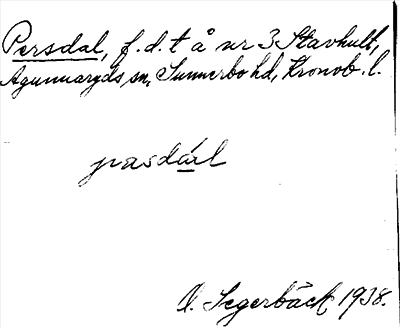 Persdal, f.d.t å nr 3 Stavhult,
Agunnaryds sn, Sunnerbo hd, Kronob. l.
pæsdál
O. Segerbäck 1938.